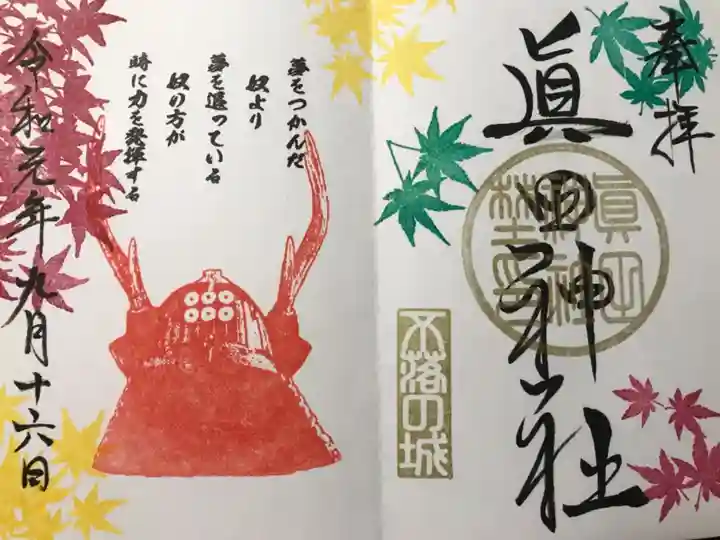 奉拝
眞田神社
眞田神社
不落の城
夢をつかんだ
奴より
夢を追っている
奴の方が
時に力を発揮する
令和元年九月十六日